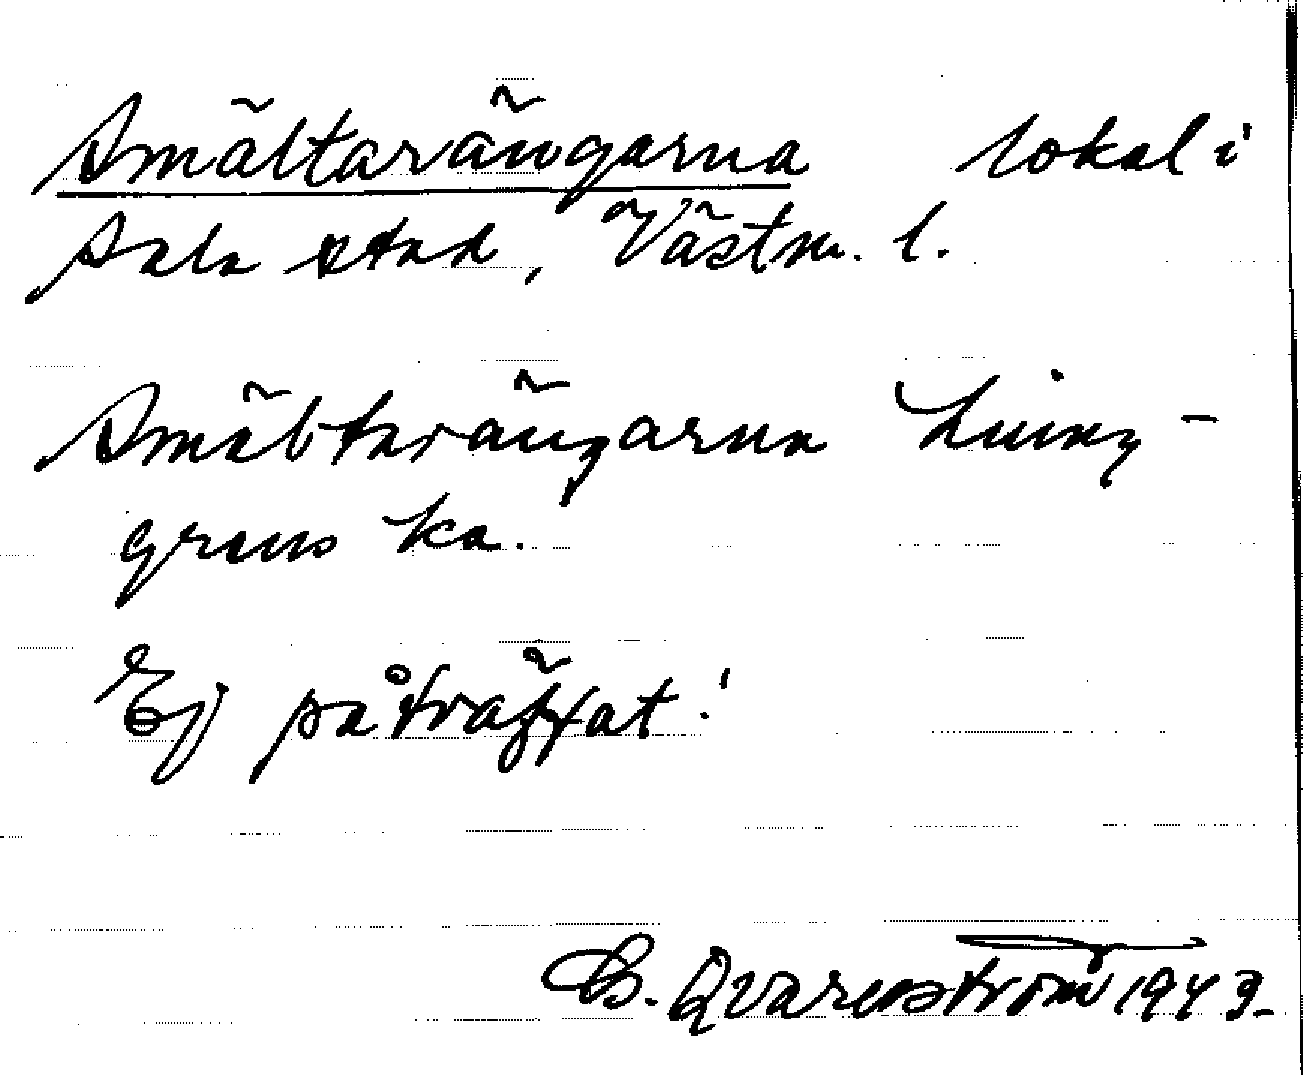 Smältarängarna lokal i
Sala stad, Västm. l.
Smältarängarna Ljung-
grens ka.
Ej påträffat!
B. Qvarnström 1943